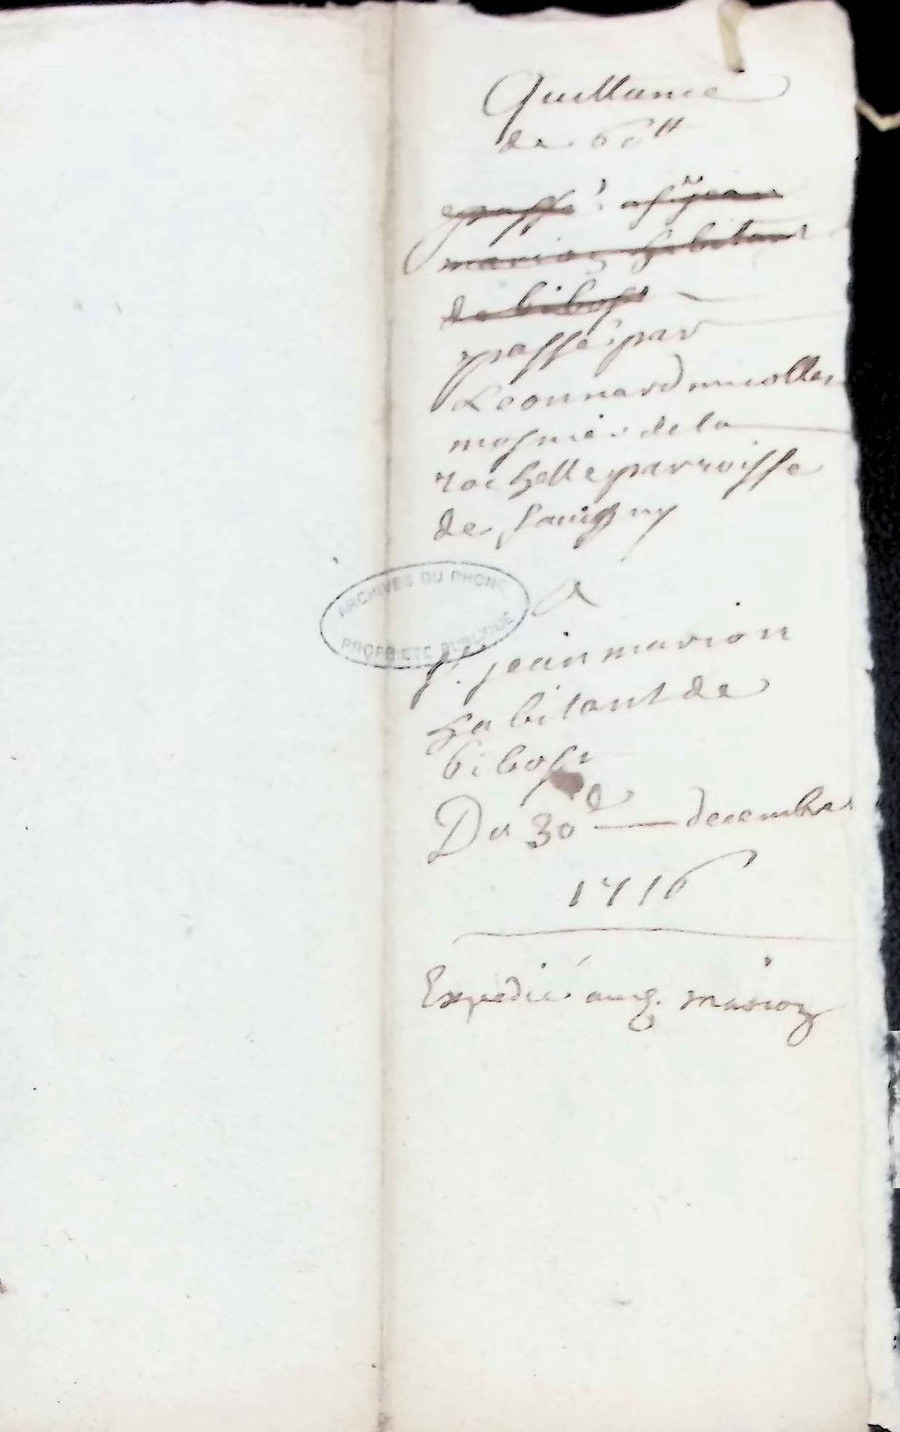 Quittance
de 60tt
passé a sr jean
marion habitant
de bibost
passée par
Leonnard
mosnier de la
rochelle parroisse
de Savigny
a
sr. jean marion
habitant de
bibost
Du 30e decembre
1716
Expedié aud. marion
ARCHIVES DU RHONE
PROPRIETE PUBLIQUE